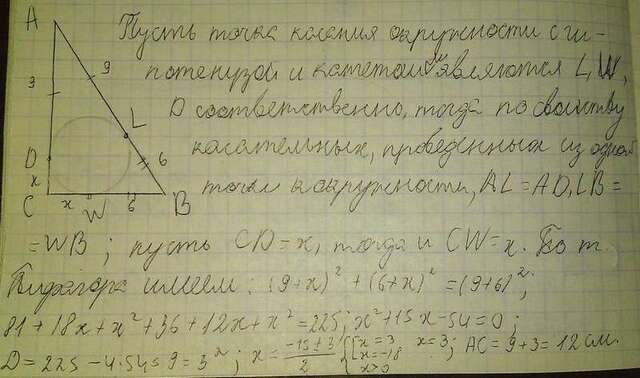 A
Пусть точка касания окружности с ги-
9
потенузой и катетами являются L, W,
3
D соответственно, тогда по свойству
L
касательных, проведенных из одной
D
6
точки к окружности, AL = AD, LB =
x
C x W 6 B
= WB; пусть CD = x, тогда и CW = x. По т.
Пифагора имеем: (9+x)² + (6+x)² = (9+6)²;
81 + 18x + x² + 36 + 12x + x² = 225; x² + 15x - 54 = 0;
D = 225 - 4·54 = 9 = 3²; x = (-15 ± 3)/2 { x = 3 x = -18 x > 0 x = 3; AC = 9 + 3 = 12 см.